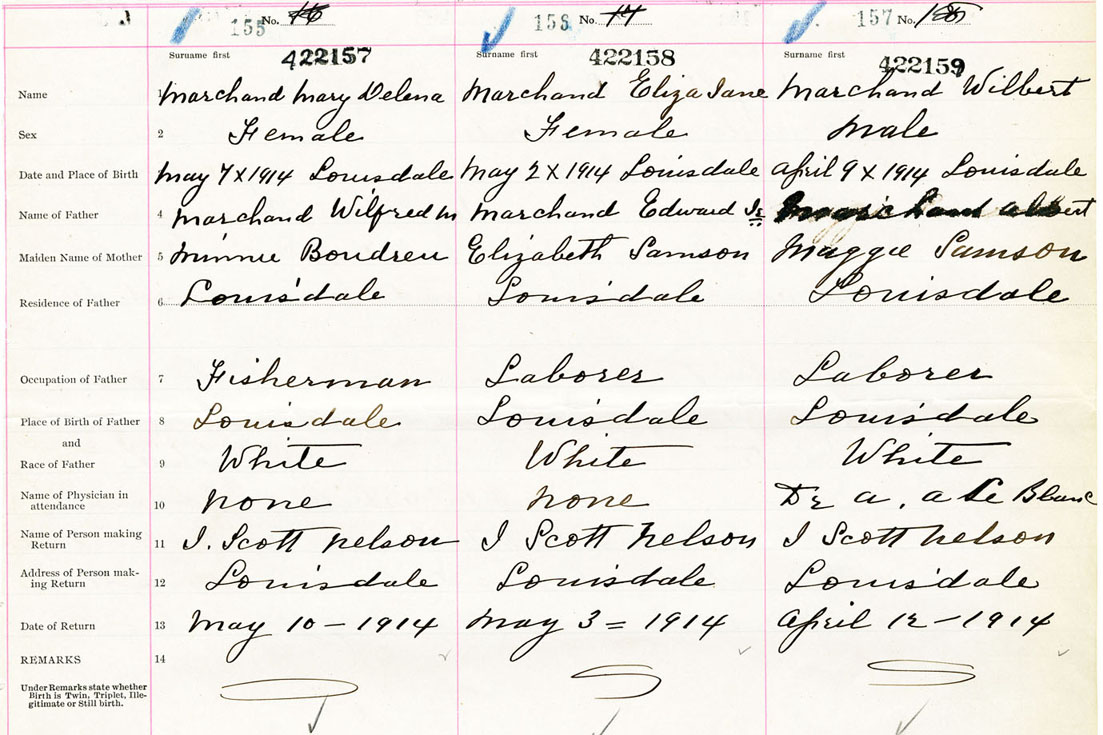 155 No. 16 156 No. 17 157 No. 18
Surname first 422157 Surname first 422158 422159
Name 1 Marchand Mary Delena Marchand Eliza Jane Marchand Wilbert
Sex 2 Female Female Male
Date and Place of Birth May 7 X 1914 Louisdale May 2 X 1914 Louisdale April 9 X 1914 Louisdale
Name of Father 4 Marchand Wilfred M Marchand Edward Jr Marchand Albert
Maiden Name of Mother 5 Minnie Boudreu Elizabeth Samson Maggie Samson
Residence of Father 6 Louisdale Louisdale Louisdale
Occupation of Father 7 Fisherman Laborer Laborer
Place of Birth of Father 8 Louisdale Louisdale Louisdale
and
Race of Father 9 White White White
Name of Physician in
attendance 10 none none Dr a. a Le Blanc
Name of Person making
Return 11 I. Scott Nelson I Scott Nelson I Scott Nelson
Address of Person mak-
ing Return 12 Louisdale Louisdale Louisdale
Date of Return 13 May 10 - 1914 May 3 = 1914 April 12 - 1914
REMARKS 14
Under Remarks state whether
Birth is Twin, Triplet, Ille-
gitimate or Still birth.